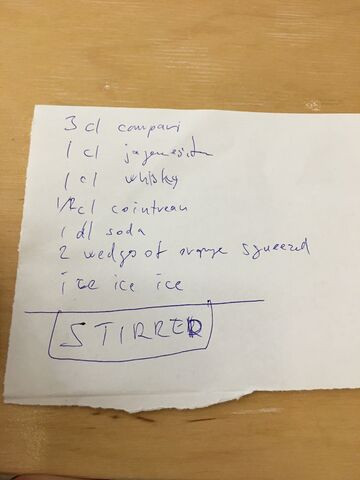 3 cl compari
1 cl jagermeister
1 cl whisky
1/2 cl cointreau
1 dl soda
2 wedges of orange squeezed
ice ice ice
STIRRED